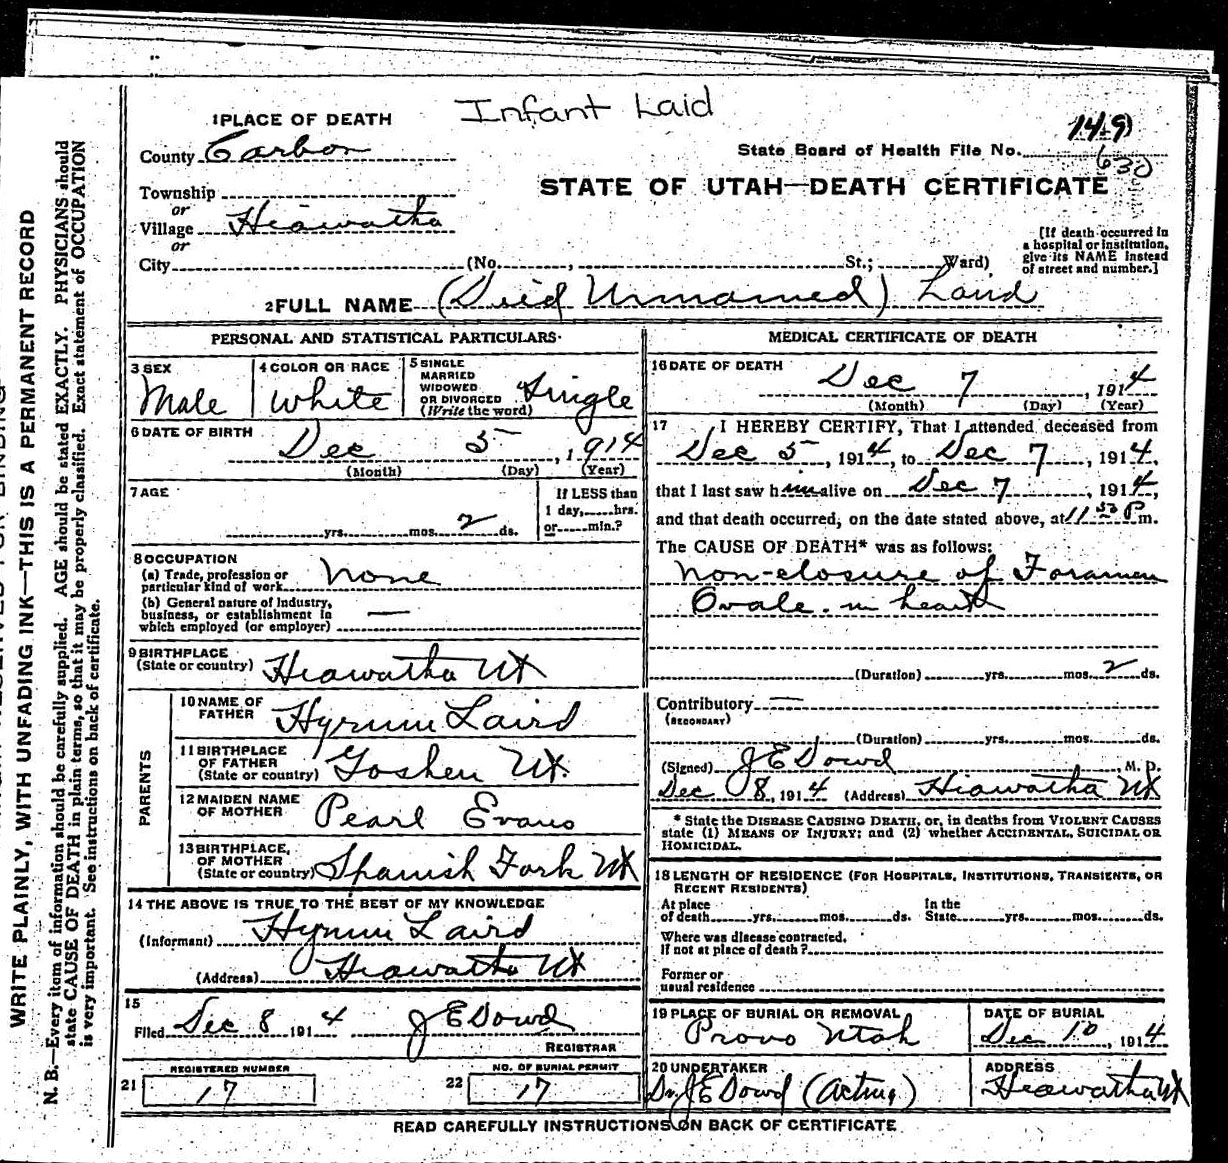 Infant Laid
1 PLACE OF DEATH
149
County Carbon
State Board of Health File No.
630
Township
STATE OF UTAH—DEATH CERTIFICATE
or
Village Hiawatha
or
City (No. , St.; Ward)
[If death occurred in
a hospital or institution,
give its NAME instead
of street and number.]
2 FULL NAME (Died Unnamed) Laird
PERSONAL AND STATISTICAL PARTICULARS
3 SEX
Male
4 COLOR OR RACE
White
5 SINGLE
MARRIED
WIDOWED
OR DIVORCED
(Write the word)
Single
6 DATE OF BIRTH
Dec 5, 1914
(Month) (Day) (Year)
7 AGE
yrs. mos. 2 ds.
If LESS than
1 day, hrs.
or min.?
8 OCCUPATION
(a) Trade, profession or
particular kind of work None
(b) General nature of industry,
business, or establishment in
which employed (or employer) —
9 BIRTHPLACE
(State or country) Hiawatha Ut
PARENTS
10 NAME OF
FATHER Hyrum Laird
11 BIRTHPLACE
OF FATHER
(State or country) Goshen Ut.
12 MAIDEN NAME
OF MOTHER Pearl Evans
13 BIRTHPLACE,
OF MOTHER
(State or country) Spanish Fork Ut
14 THE ABOVE IS TRUE TO THE BEST OF MY KNOWLEDGE
(Informant) Hyrum Laird
(Address) Hiawatha Ut
15
Filed Dec 8 1914 J E Dowd
REGISTRAR
21
REGISTERED NUMBER
17
22
NO. OF BURIAL PERMIT
17
MEDICAL CERTIFICATE OF DEATH
16 DATE OF DEATH
Dec 7, 1914
(Month) (Day) (Year)
17 I HEREBY CERTIFY, That I attended deceased from
Dec 5, 1914, to Dec 7, 1914,
that I last saw him alive on Dec 7, 1914,
and that death occurred, on the date stated above, at 11 50 P m.
The CAUSE OF DEATH* was as follows:
Non-closure of Foramen
Ovale. in heart
(Duration) yrs. mos. 2 ds.
Contributory —
(SECONDARY)
(Duration) yrs. mos. ds.
(Signed) J E Dowd, M. D.
Dec 8, 1914 (Address) Hiawatha Ut
* State the DISEASE CAUSING DEATH, or, in deaths from VIOLENT CAUSES
state (1) MEANS OF INJURY; and (2) whether ACCIDENTAL, SUICIDAL OR
HOMICIDAL.
18 LENGTH OF RESIDENCE (FOR HOSPITALS, INSTITUTIONS, TRANSIENTS, OR
RECENT RESIDENTS)
At place
of death yrs. mos. ds.
In the
State yrs. mos. ds.
Where was disease contracted,
if not at place of death?
Former or
usual residence
19 PLACE OF BURIAL OR REMOVAL
Provo Utah
DATE OF BURIAL
Dec 10, 1914
20 UNDERTAKER
Dr. J E Dowd (Acting)
ADDRESS
Hiawatha Ut
READ CAREFULLY INSTRUCTIONS ON BACK OF CERTIFICATE
WRITE PLAINLY, WITH UNFADING INK—THIS IS A PERMANENT RECORD
N. B.—Every item of information should be carefully supplied. AGE should be stated EXACTLY. PHYSICIANS should
state CAUSE OF DEATH in plain terms, so that it may be properly classified. Exact statement of OCCUPATION
is very important. See instructions on back of certificate.